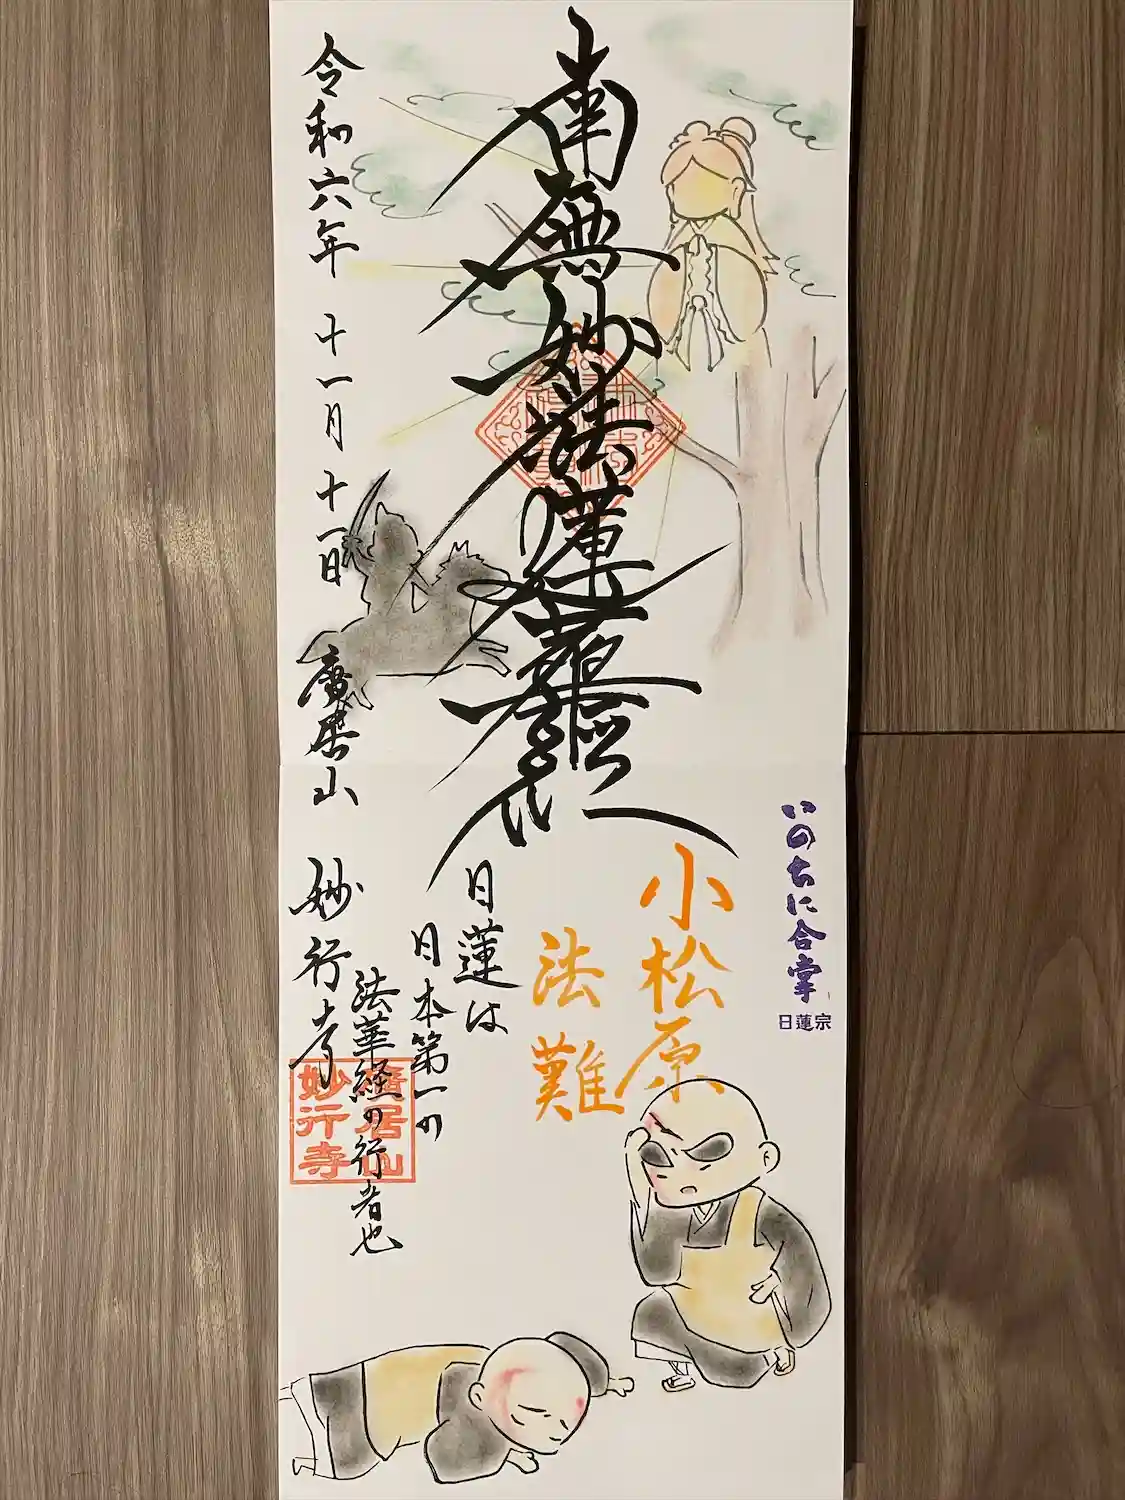 南無妙法蓮華経
いのちに合掌
日蓮宗
小松原
法難
日蓮は
日本第一の
法華経の行者也
令和六年 十一月 十一日 廣栄山 妙行寺
廣居山
妙行寺